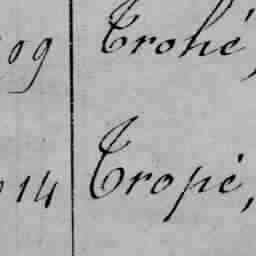 09 Trohé,
14 Tropé,